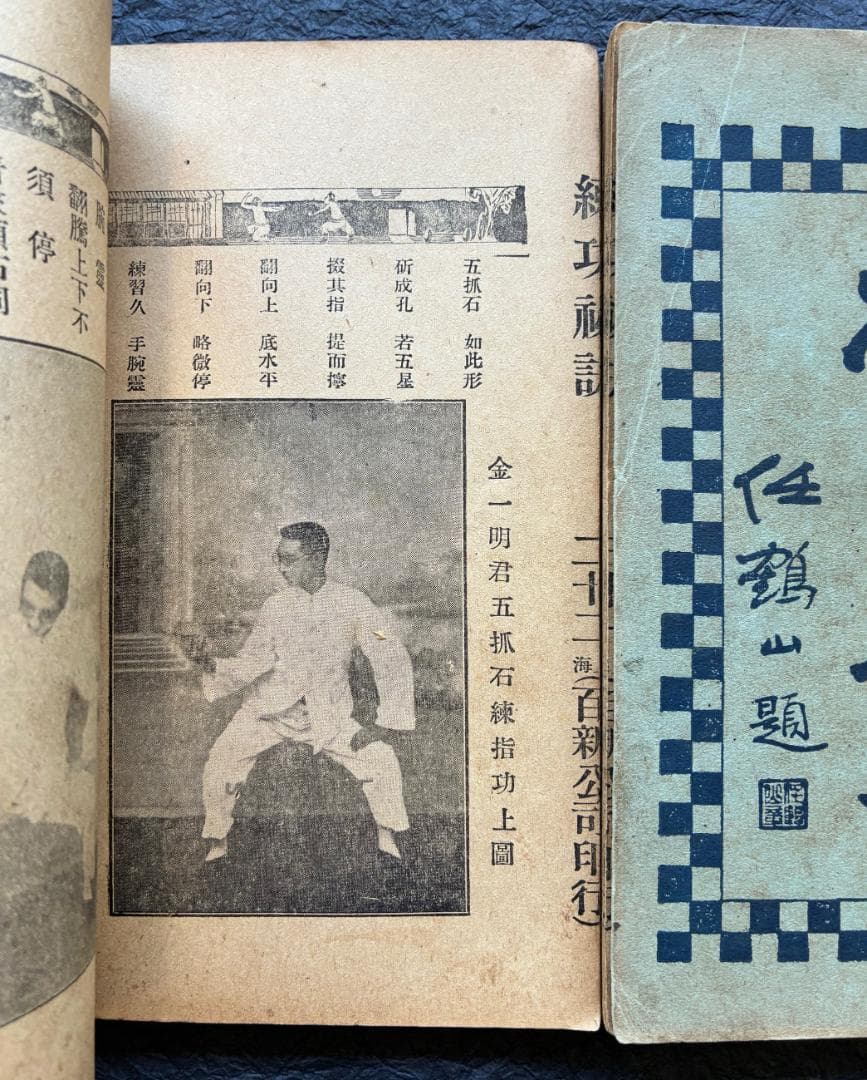 五抓石　如此形
斫成孔　若五星
掇其指　提而擰
翻向上　底水平
翻向下　略微停
練習久　手腕靈
金一明君五抓石練指功上圖
練功秘訣
二十二
海
(百新公司印行)
翻騰上下不
須停
任鶴山題